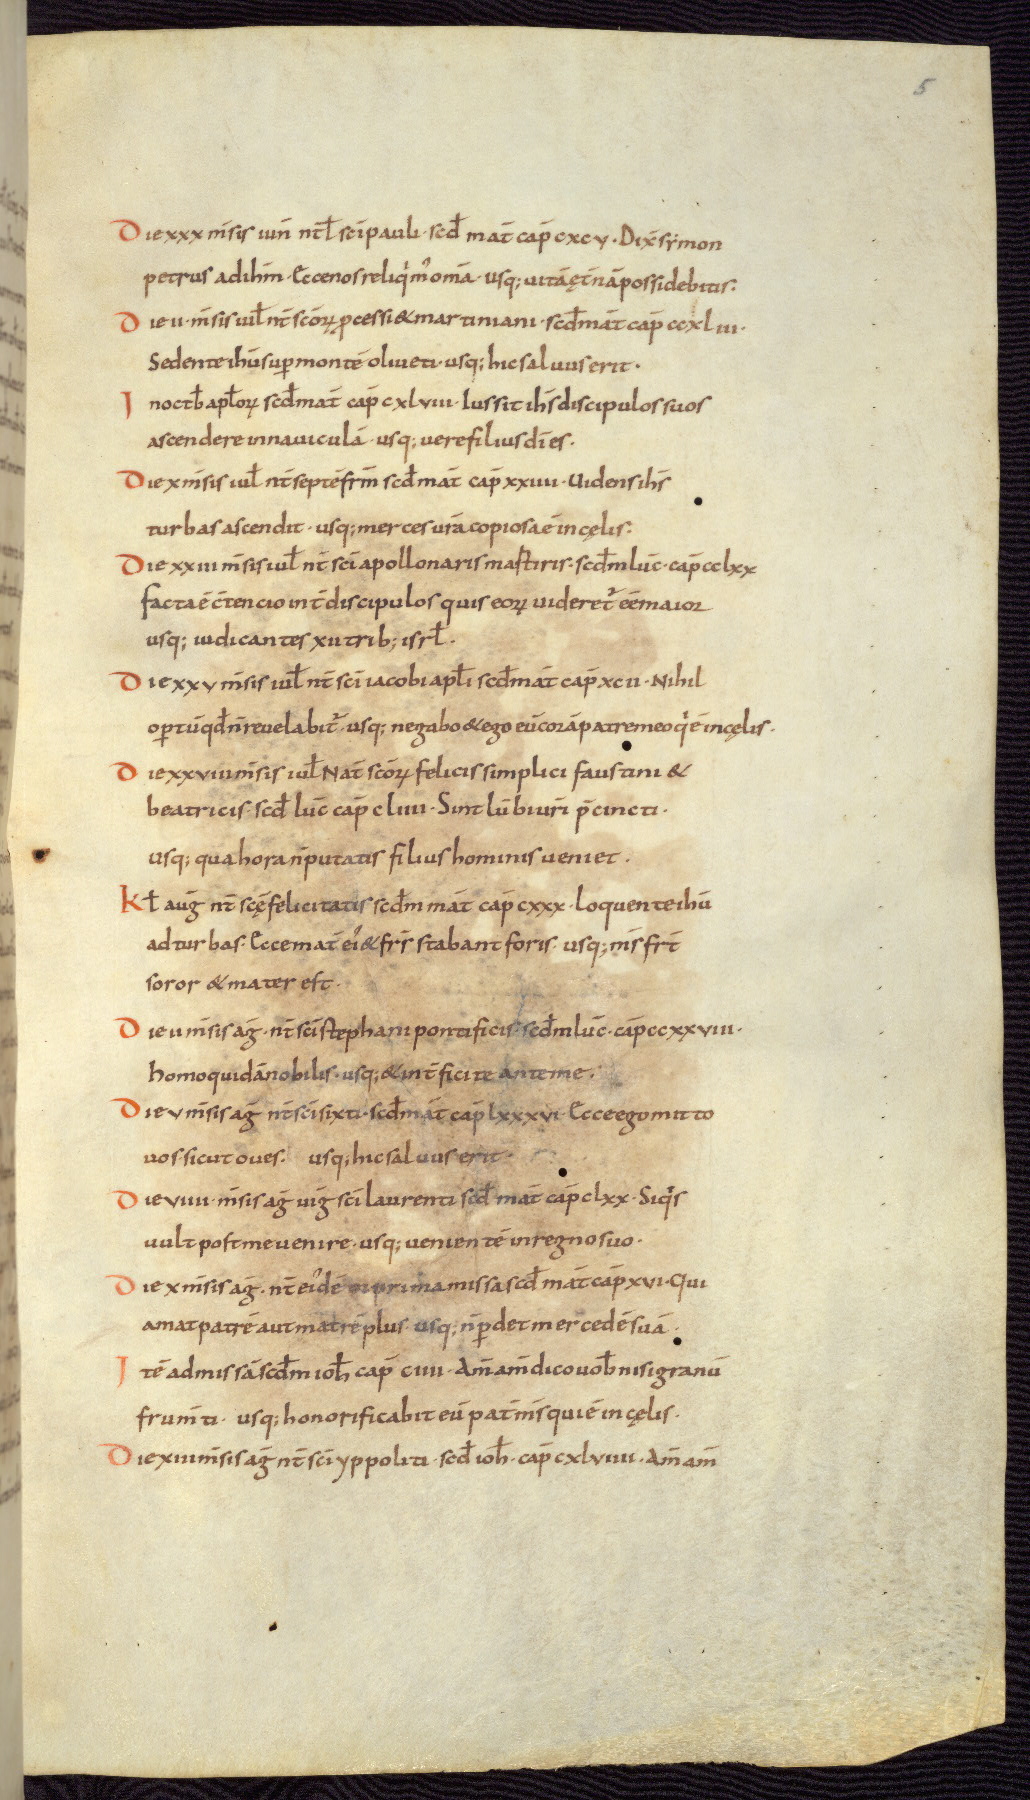 5
Die xxx m̄sis iun̄ nt̄l sc̄i pauli · scd̄ mat̄ cap̄ cxcv · Dix̄ symon
petrus ad ih̄m · Ecce nos reliq̇m᷒ om̄a · usq; uitā ęt̄nā possidebitis:
Die ii · m̄sis iul̄ nt̄ scōꝝ ꝓcessi & martiniani · scd̄ mat̄ cap̄ ccxlii ·
Sedente ihū sup̄ montē oliueti · usq; hic saluus erit ·
In oct̄b apl̄oꝝ scd̄ mat̄ cap̄ cxlviii · Iussit ih̄s discipulos suos
ascendere in nauiculā · usq; uere filius dī es ·
Die x m̄sis iul̄ nt̄ septē fr̄m scd̄ mat̄ cap̄ xxiiii · Uidens ih̄s
turbas ascendit · usq; merces ur̄a copiosa ē in cęlis:
Die xxiii m̄sis iul̄ nt̄ sc̄i apollonaris martiris · scd̄m luc̄ · cap̄ cclxx
facta ē c̄tencio int̄ discipulos quis eoꝝ uideret᷒ eē maior
usq; iudicantes xii trib; isrl̄ ·
Die xxv m̄sis iul̄ nt̄ sc̄i iacobi apl̄i scd̄ mat̄ cap̄ xcii · Nihil
optū qd̄ n̄ reuelabit᷒ · usq; negabo & ego eū corā patre meo q̇ ē in cęlis ·
Die xxviiii m̄sis iul̄ Nat̄ scōꝝ felicis simplici faustini &
beatricis · scd̄ luc̄ cap̄ cliiii · Sint lūbi uri̅ p̄cincti ·
usq; qua hora n̄ putatis filius hominis ueniet ·
Kl̄ aug̅ nt̄ scę̄ felicitatis scd̄m mat̄ cap̄ cxxx · loquente ihū
ad turbas · Ecce mat̄ ei᷒ & fr̄s stabant foris · usq; m̄s frt̄
soror & mater est ·
Die ii m̄sis ag̅ · nt̄ sc̄i stephani pontificis · scd̄m luc̄ · cap̄ ccxxviii ·
homo quidā nobilis · usq; & int̄ficite ante me ·
Die v m̄sis ag̅ nt̄ sc̄i sixti · scd̄ mat̄ cap̄ lxxxvi · Ecce ego mitto
uos sicut oues · usq; hic saluus erit ·
Die viiii · m̄sis ag̅ uig̅ sc̄i laurenti scd̄ mat̄ cap̄ clxx · Siq̇s
uult post me uenire · usq; uenientē in regno suo ·
Die x m̄sis ag̅ · nt̄ ei᷒dē in prima missa scd̄ mat̄ cap̄ xvi · Qui
amat patrē aut matrē plus · usq; n̄ ꝑdet mercedē suā ·
Itē ad missā scd̄m ioh̄ cap̄ ciiii · Am̄ am̄ dico uob̄ nisi granū
frum̄ti · usq; honorificabit eū pat̄ m̄s qui ē in cęlis ·
Die xiii m̄sis ag̅ nt̄ sc̄i yppoliti · scd̄ ioh̄ · cap̄ cxlviiii · Am̄ am̄